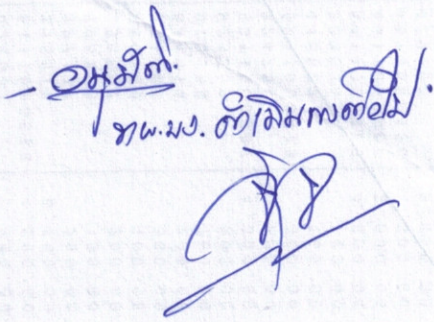 - อนุมัติ.
ทผ.บง. ดำเนินการต่อไป.